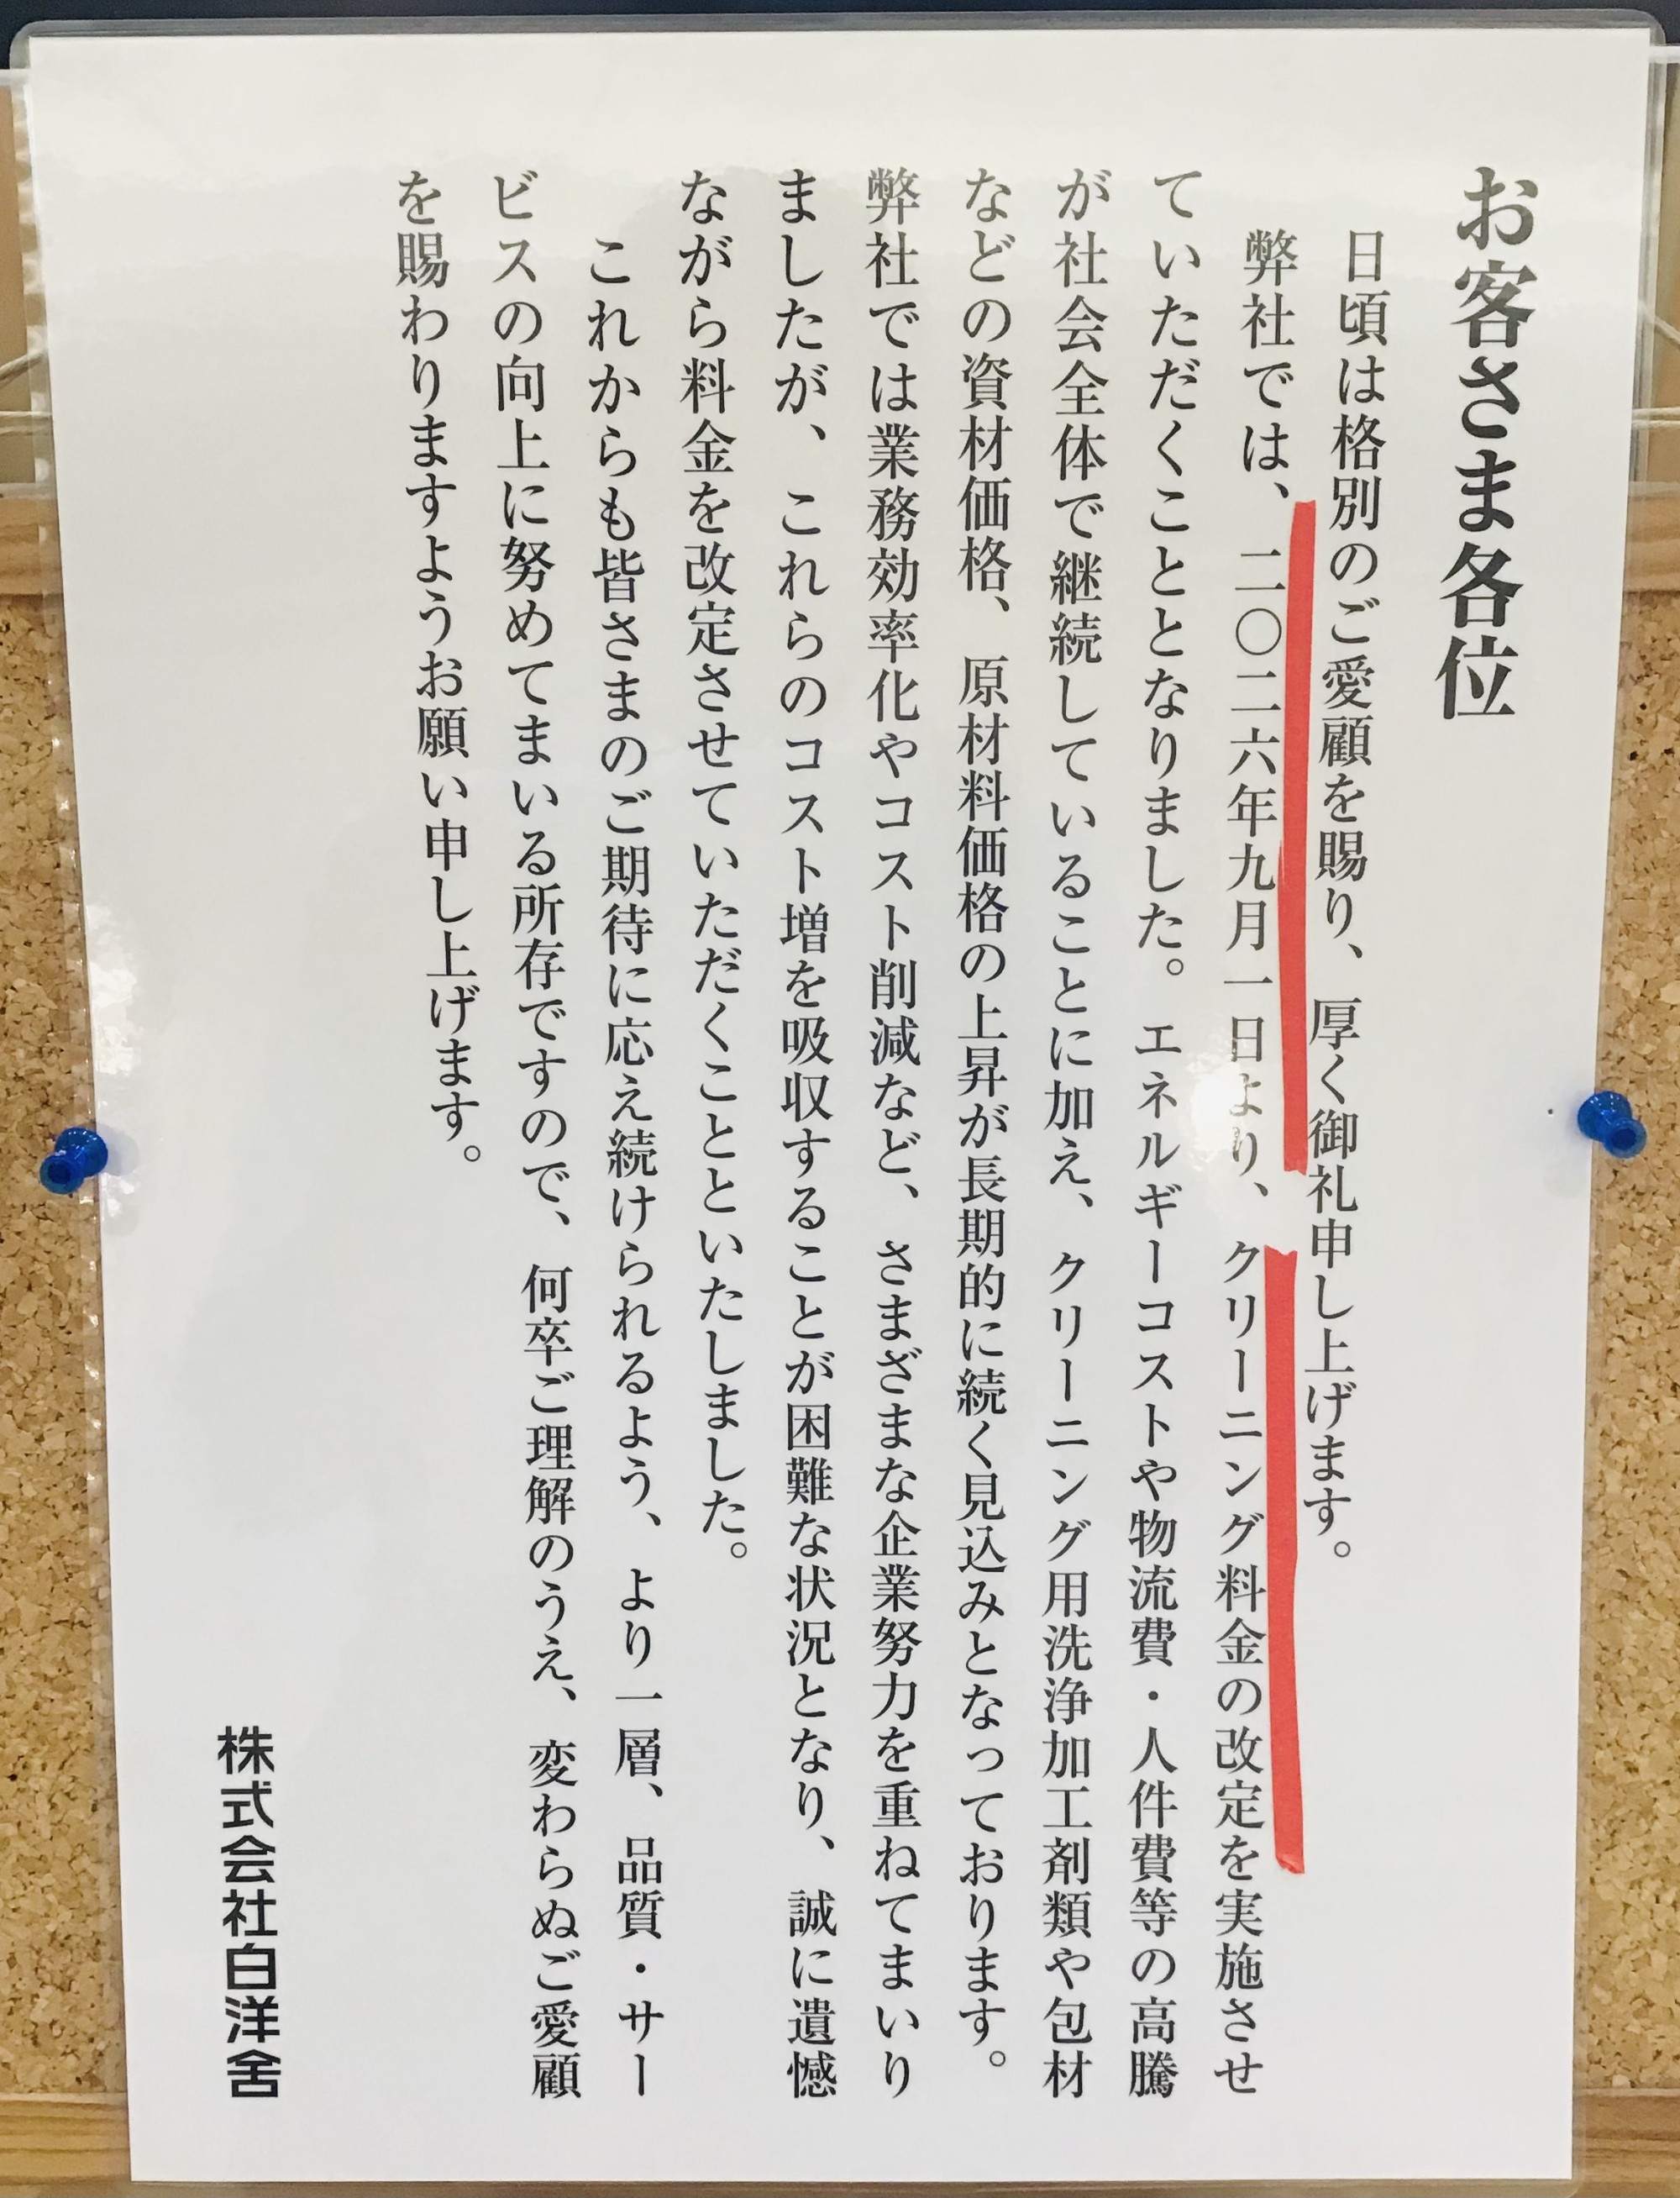 お客さま各位
日頃は格別のご愛顧を賜り、厚く御礼申し上げます。
弊社では、二〇二六年九月一日より、クリーニング料金の改定を実施させ
ていただくこととなりました。エネルギーコストや物流費・人件費等の高騰
が社会全体で継続していることに加え、クリーニング用洗浄加工剤類や包材
などの資材価格、原材料価格の上昇が長期的に続く見込みとなっております。
弊社では業務効率化やコスト削減など、さまざまな企業努力を重ねてまいり
ましたが、これらのコスト増を吸収することが困難な状況となり、誠に遺憾
ながら料金を改定させていただくことといたしました。
これからも皆さまのご期待に応え続けられるよう、より一層、品質・サー
ビスの向上に努めてまいる所存ですので、何卒ご理解のうえ、変わらぬご愛顧
を賜わりますようお願い申し上げます。
株式会社白洋舍